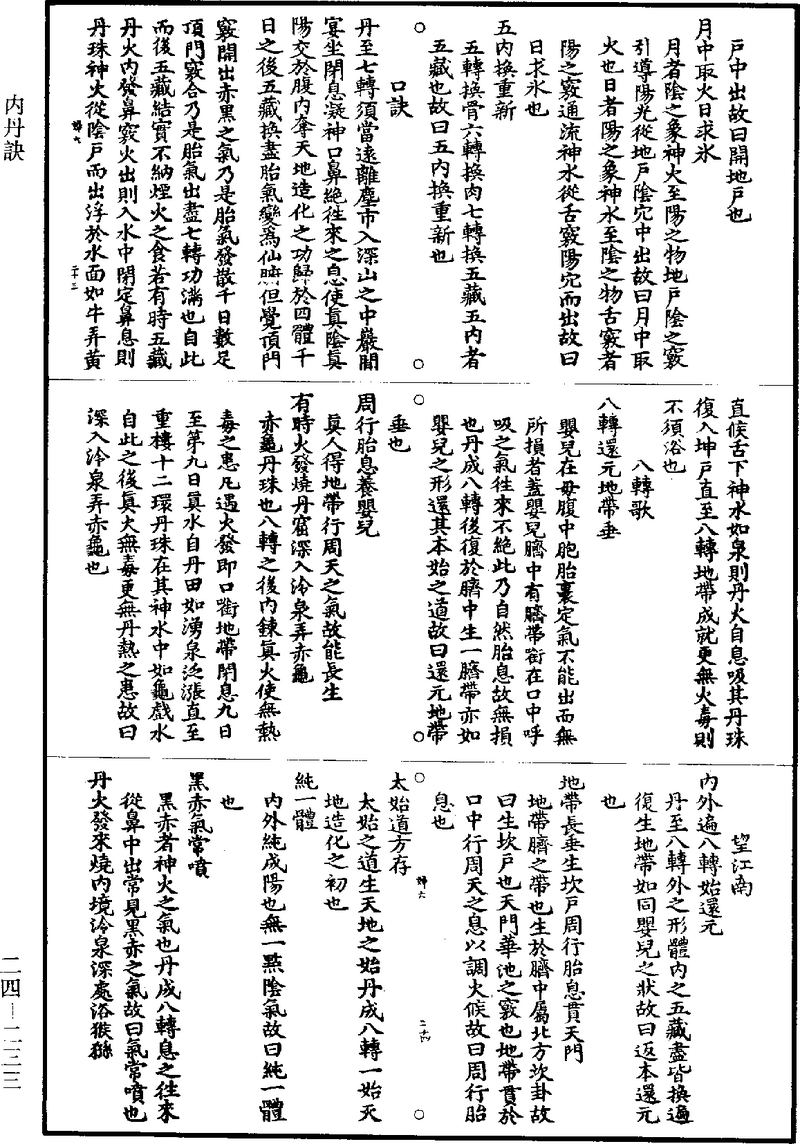 戶中出故曰開地戶也
月中取火日求氷
月者陰之象神火至陽之物地戶陰之竅
引導陽光從地戶陰宂中出故曰月中取
火也日者陽之象神水至陰之物舌竅者
陽之竅通流神水從舌竅陽宂而出故曰
日求氷也
五內換重新
五轉換骨六轉換肉七轉換五藏五內者
五藏也故曰五內換重新也
口訣
丹至七轉須當遠離塵市入深山之中巖間
宴坐閉息凝神口鼻絶徃來之息使眞陰眞
陽交於腹內奪天地造化之功歸於四體千
日之後五藏換盡胎氣變爲仙腑但覺頂門
竅開出赤黑之氣乃是胎氣發散千日數足
頂門竅合乃是胎氣出盡七轉功滿也自此
而後五藏結實不納煙火之食若有時五藏
丹火內發鼻竅火出則入水中閉定鼻息則
丹珠神火從陰戶而出浮於水面如牛弄黃
直候舌下神水如泉則丹火自息吸其丹珠
復入坤戶直至八轉地帶成就更無火毒則
不須浴也
八轉歌
八轉還元地帶垂
嬰兒在母腹中胞胎裹定氣不能出而無
所損者蓋嬰兒臍中有臍帶銜在口中呼
吸之氣徃來不絶此乃自然胎息故無損
也丹成八轉後復於臍中生一臍帶亦如
嬰兒之形還其本始之道故曰還元地帶
垂也
周行胎息養嬰兒
眞人得地帶行周天之氣故能長生
有時火發燒丹窟深入泠泉弄赤龜
赤龜丹珠也八轉之後內鍊眞火使無熱
毒之患凡遇火發即口銜地帶閉息九日
至第九日眞水自丹田如湧泉泛漲直至
重樓十二環丹珠在其神水中如龜戲水
自此之後眞火無毒更無丹熱之患故曰
深入泠泉弄赤龜也
望江南
內外遍八轉始還元
丹至八轉外之形體內之五藏盡皆換過
復生地帶如同嬰兒之狀故曰返本還元
也
地帶長垂生坎戶周行胎息貫天門
地帶臍之帶也生於臍中屬北方坎卦故
曰生坎戶也天門華池之竅也地帶貫於
口中行周天之息以調火候故曰周行胎
息也
太始道方存
太始之道生天地之始丹成八轉一始天
地造化之初也
純一體
內外純成陽也無一點陰氣故曰純一體
也
黑赤氣常噴
黑赤者神火之氣也丹成八轉息之徃來
從鼻中出常見黑赤之氣故曰氣常噴也
丹火發來燒內境泠泉深處浴猴猻
內丹訣
二四—二三三